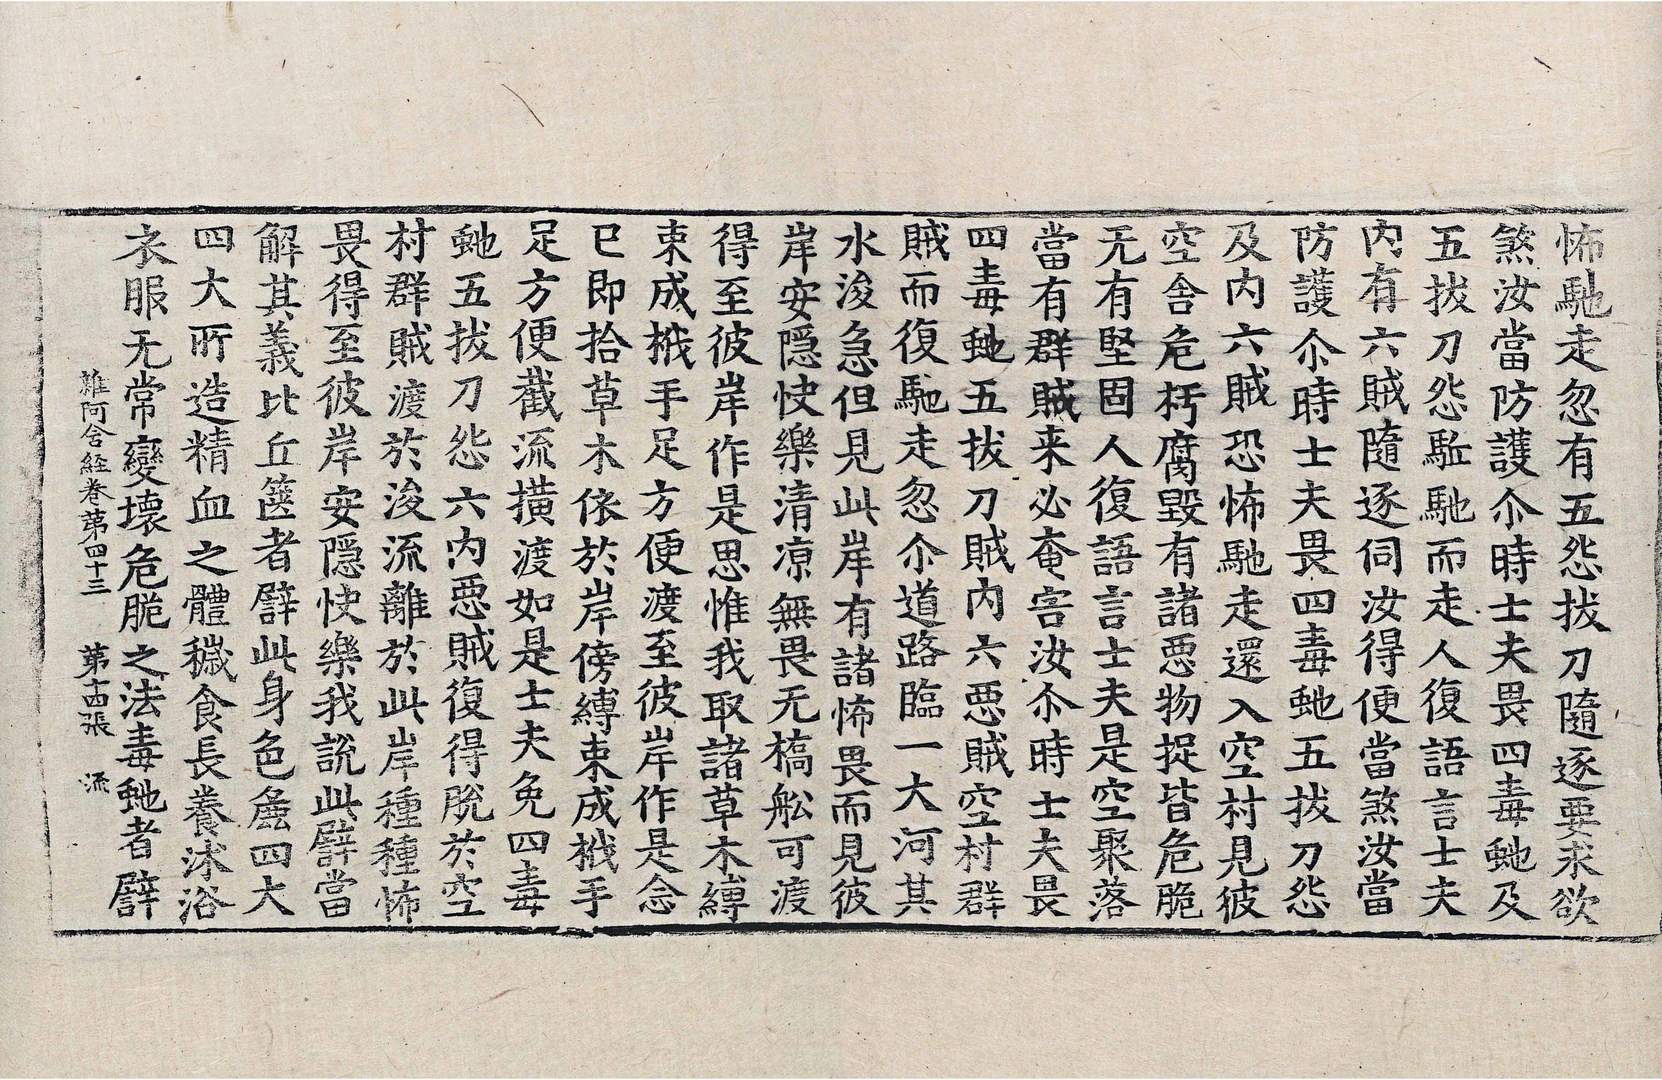 怖馳走忽有五怨拔刀隨逐要求欲
煞汝當防護尒時士夫畏四毒虵及
五拔刀怨駈馳而走人復語言士夫
內有六賊隨逐伺汝得便當煞汝當
防護尒時士夫畏四毒虵五拔刀怨
及內六賊恐怖馳走還入空村見彼
空舍危朽腐毀有諸惡物捉皆危脆
无有堅固人復語言士夫是空聚落
當有群賊来必奄害汝尒時士夫畏
四毒虵五拔刀賊內六惡賊空村群
賊而復馳走忽尒道路臨一大河其
水浚急但見此岸有諸怖畏而見彼
岸安隱快樂清涼無畏无橋舩可渡
得至彼岸作是思惟我取諸草木縛
束成栰手足方便渡至彼岸作是念
已即拾草木依於岸傍縛束成栰手
足方便截流橫渡如是士夫免四毒
虵五拔刀怨六內惡賊復得脫於空
村群賊渡於浚流離於此岸種種怖
畏得至彼岸安隱快樂我說此譬當
解其義比丘篋者譬此身色麁四大
四大所造精血之體穢食長養沐浴
衣服无常變壞危脆之法毒虵者譬
雜阿含経卷第四十三 第十四張 流